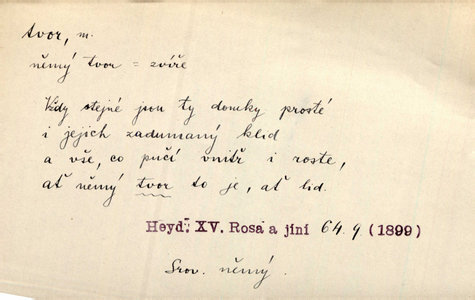 tvor, m.
němý tvor = zvíře
Vždy stejné jsou ty domky prosté
i jejich zadumaný klid
a vše, co pučí vnitř i roste,
ať němý tvor to je, ať lid.
Heyd. XV. Rosa a jíní 64.9 (1899)
Srov. němý.